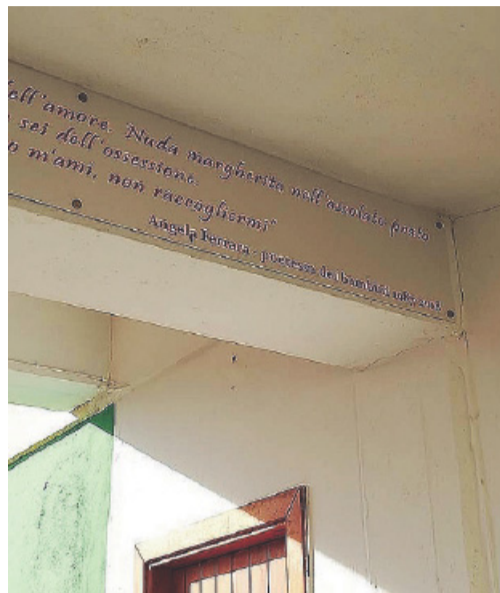 ell'amore. Nuda margherita nell'assolato prato
sei dell'ossessione.
m'ami, non raccogliermi"
Angela Ferrara - poetessa dei bambini 1987-2018